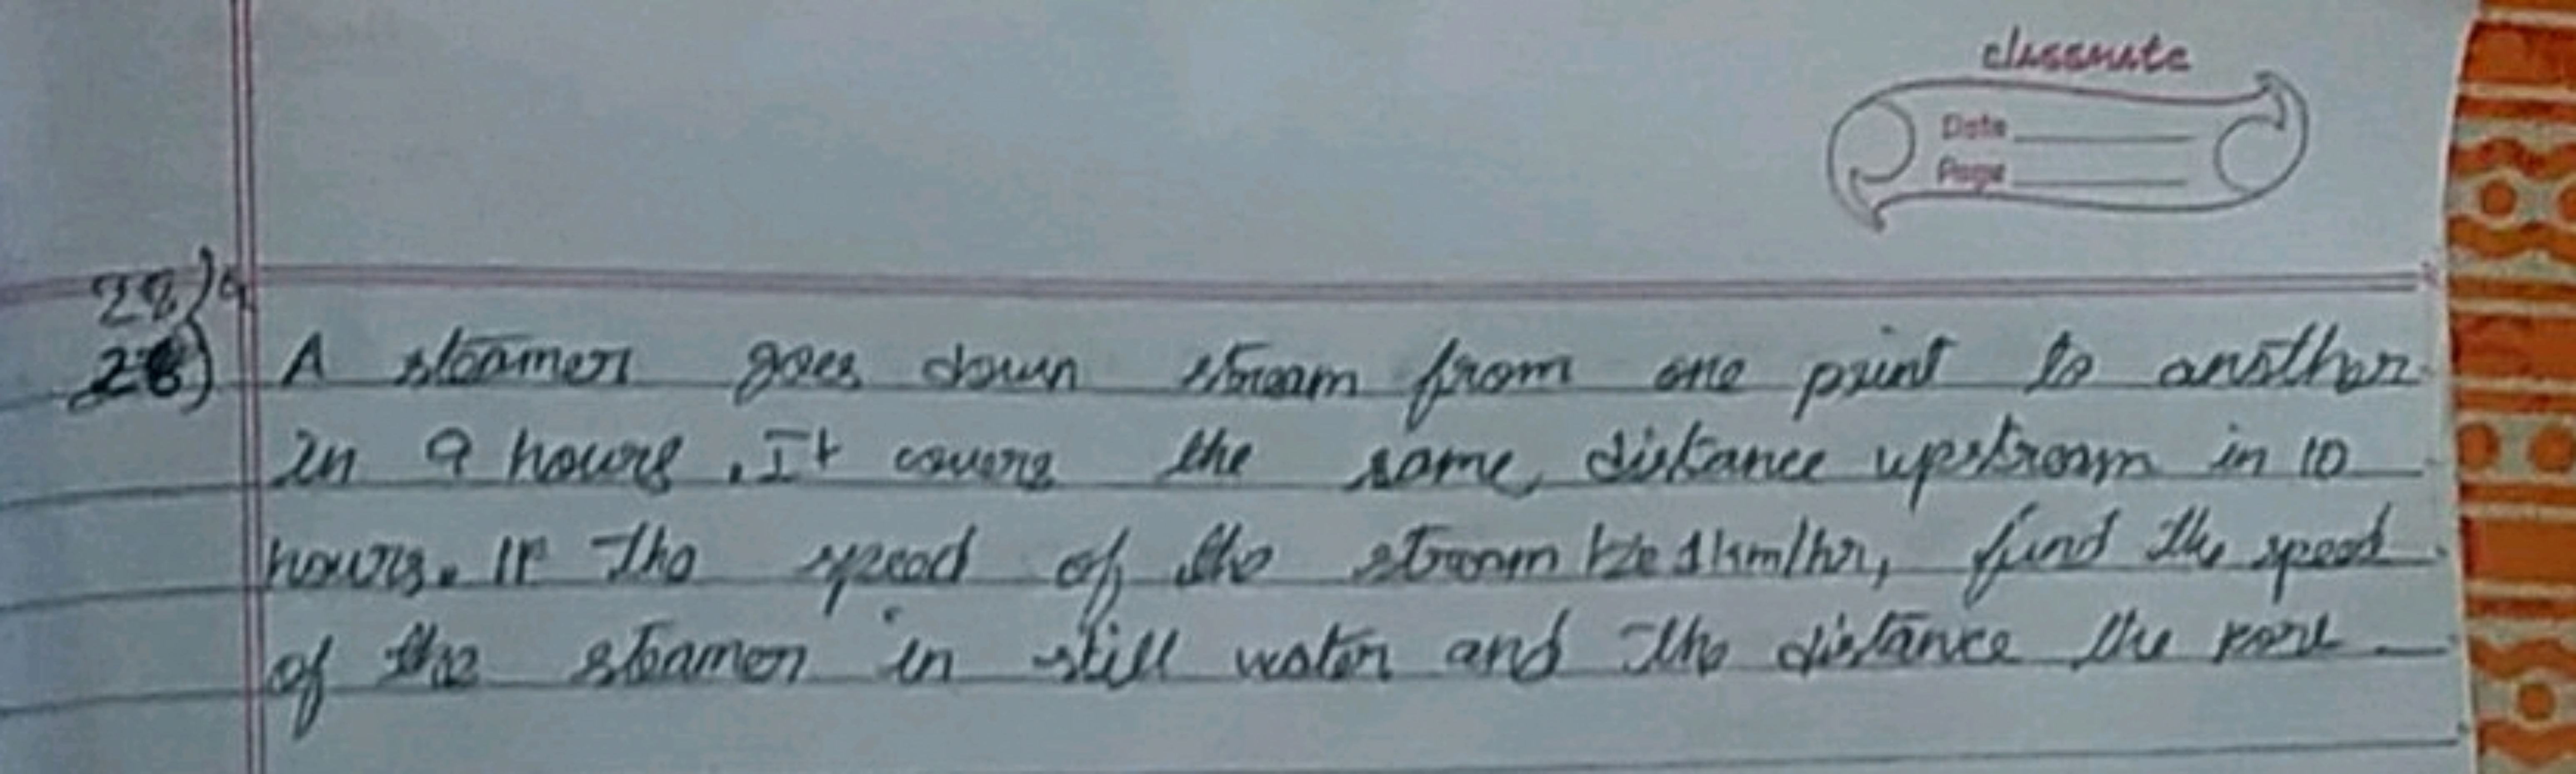 classmate
Date
Page
28)
28) A steamer goes down stream from one point to another
in 9 hours. It covers the same distance upstream in 10
hours. If the speed of the stream be 1km/hr, find the speed
of the steamer in still water and the distance the